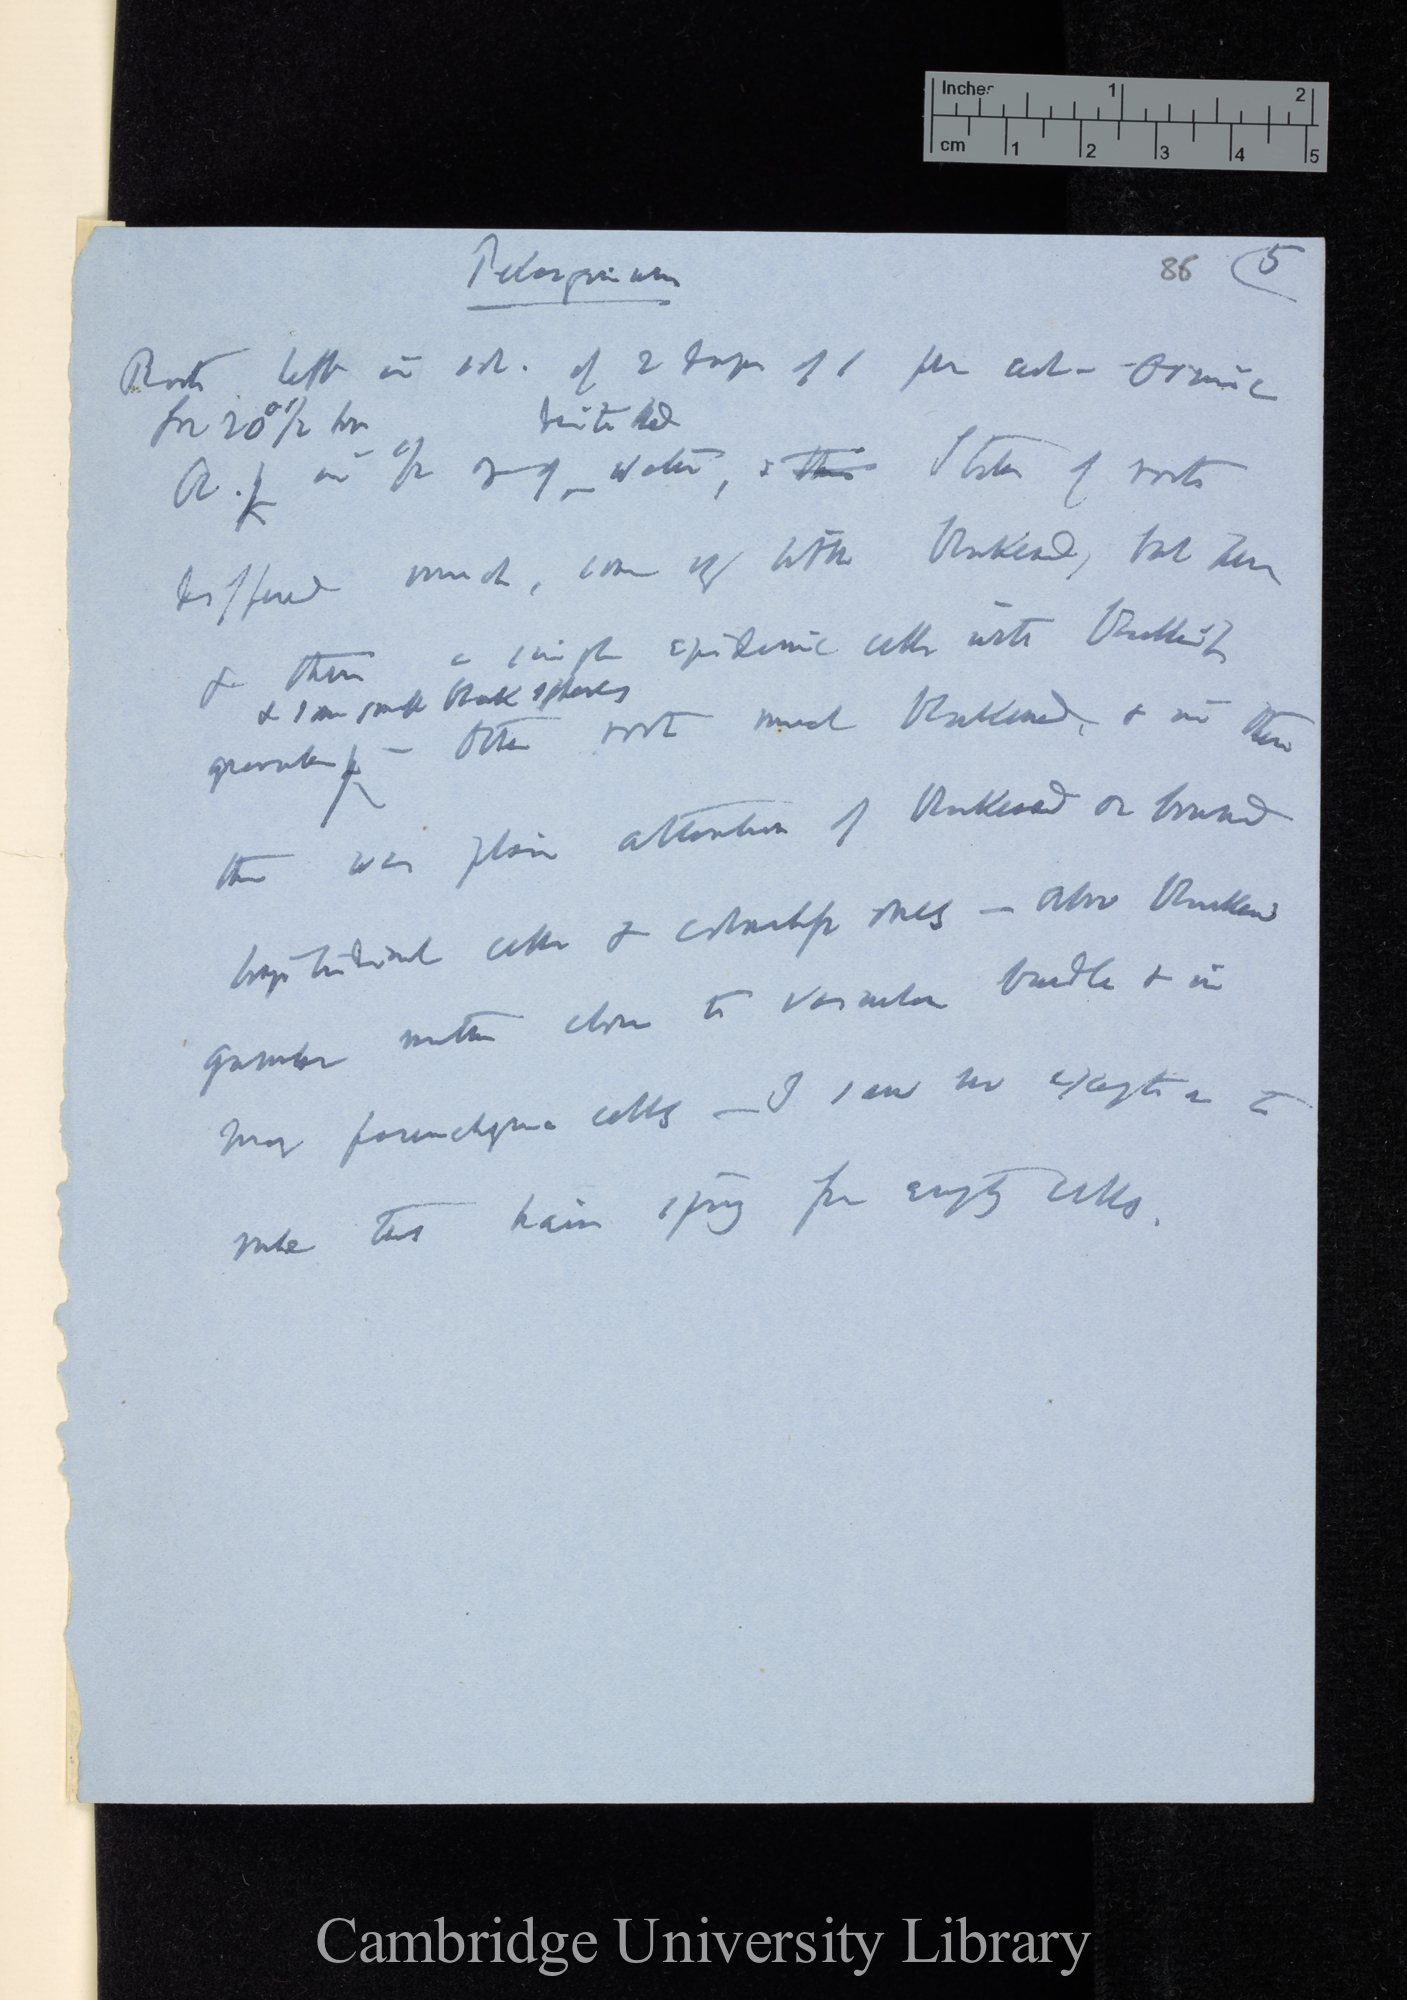 Inches 1 2
cm 1 2 3 4 5
Pelargonium
86 (5
Roots left in sol. of 2 drops of 1 per cent Osmic
for 20 1/2 hr distilled
in 1/2 oz of water, & this State of roots
differed much, some of little blackened, but here
& there a single epidermic cells with blackish
& some small black spheres
granular — Other roots much blackened, & in these
there was plain alternation of blackened or brown
longitudinal cells & colourless ones — also blackened
granular matter close to vascular bundle & in
many parenchyma cells — I saw no exception to
rule that hairs spring from empty cells.
Cambridge University Library